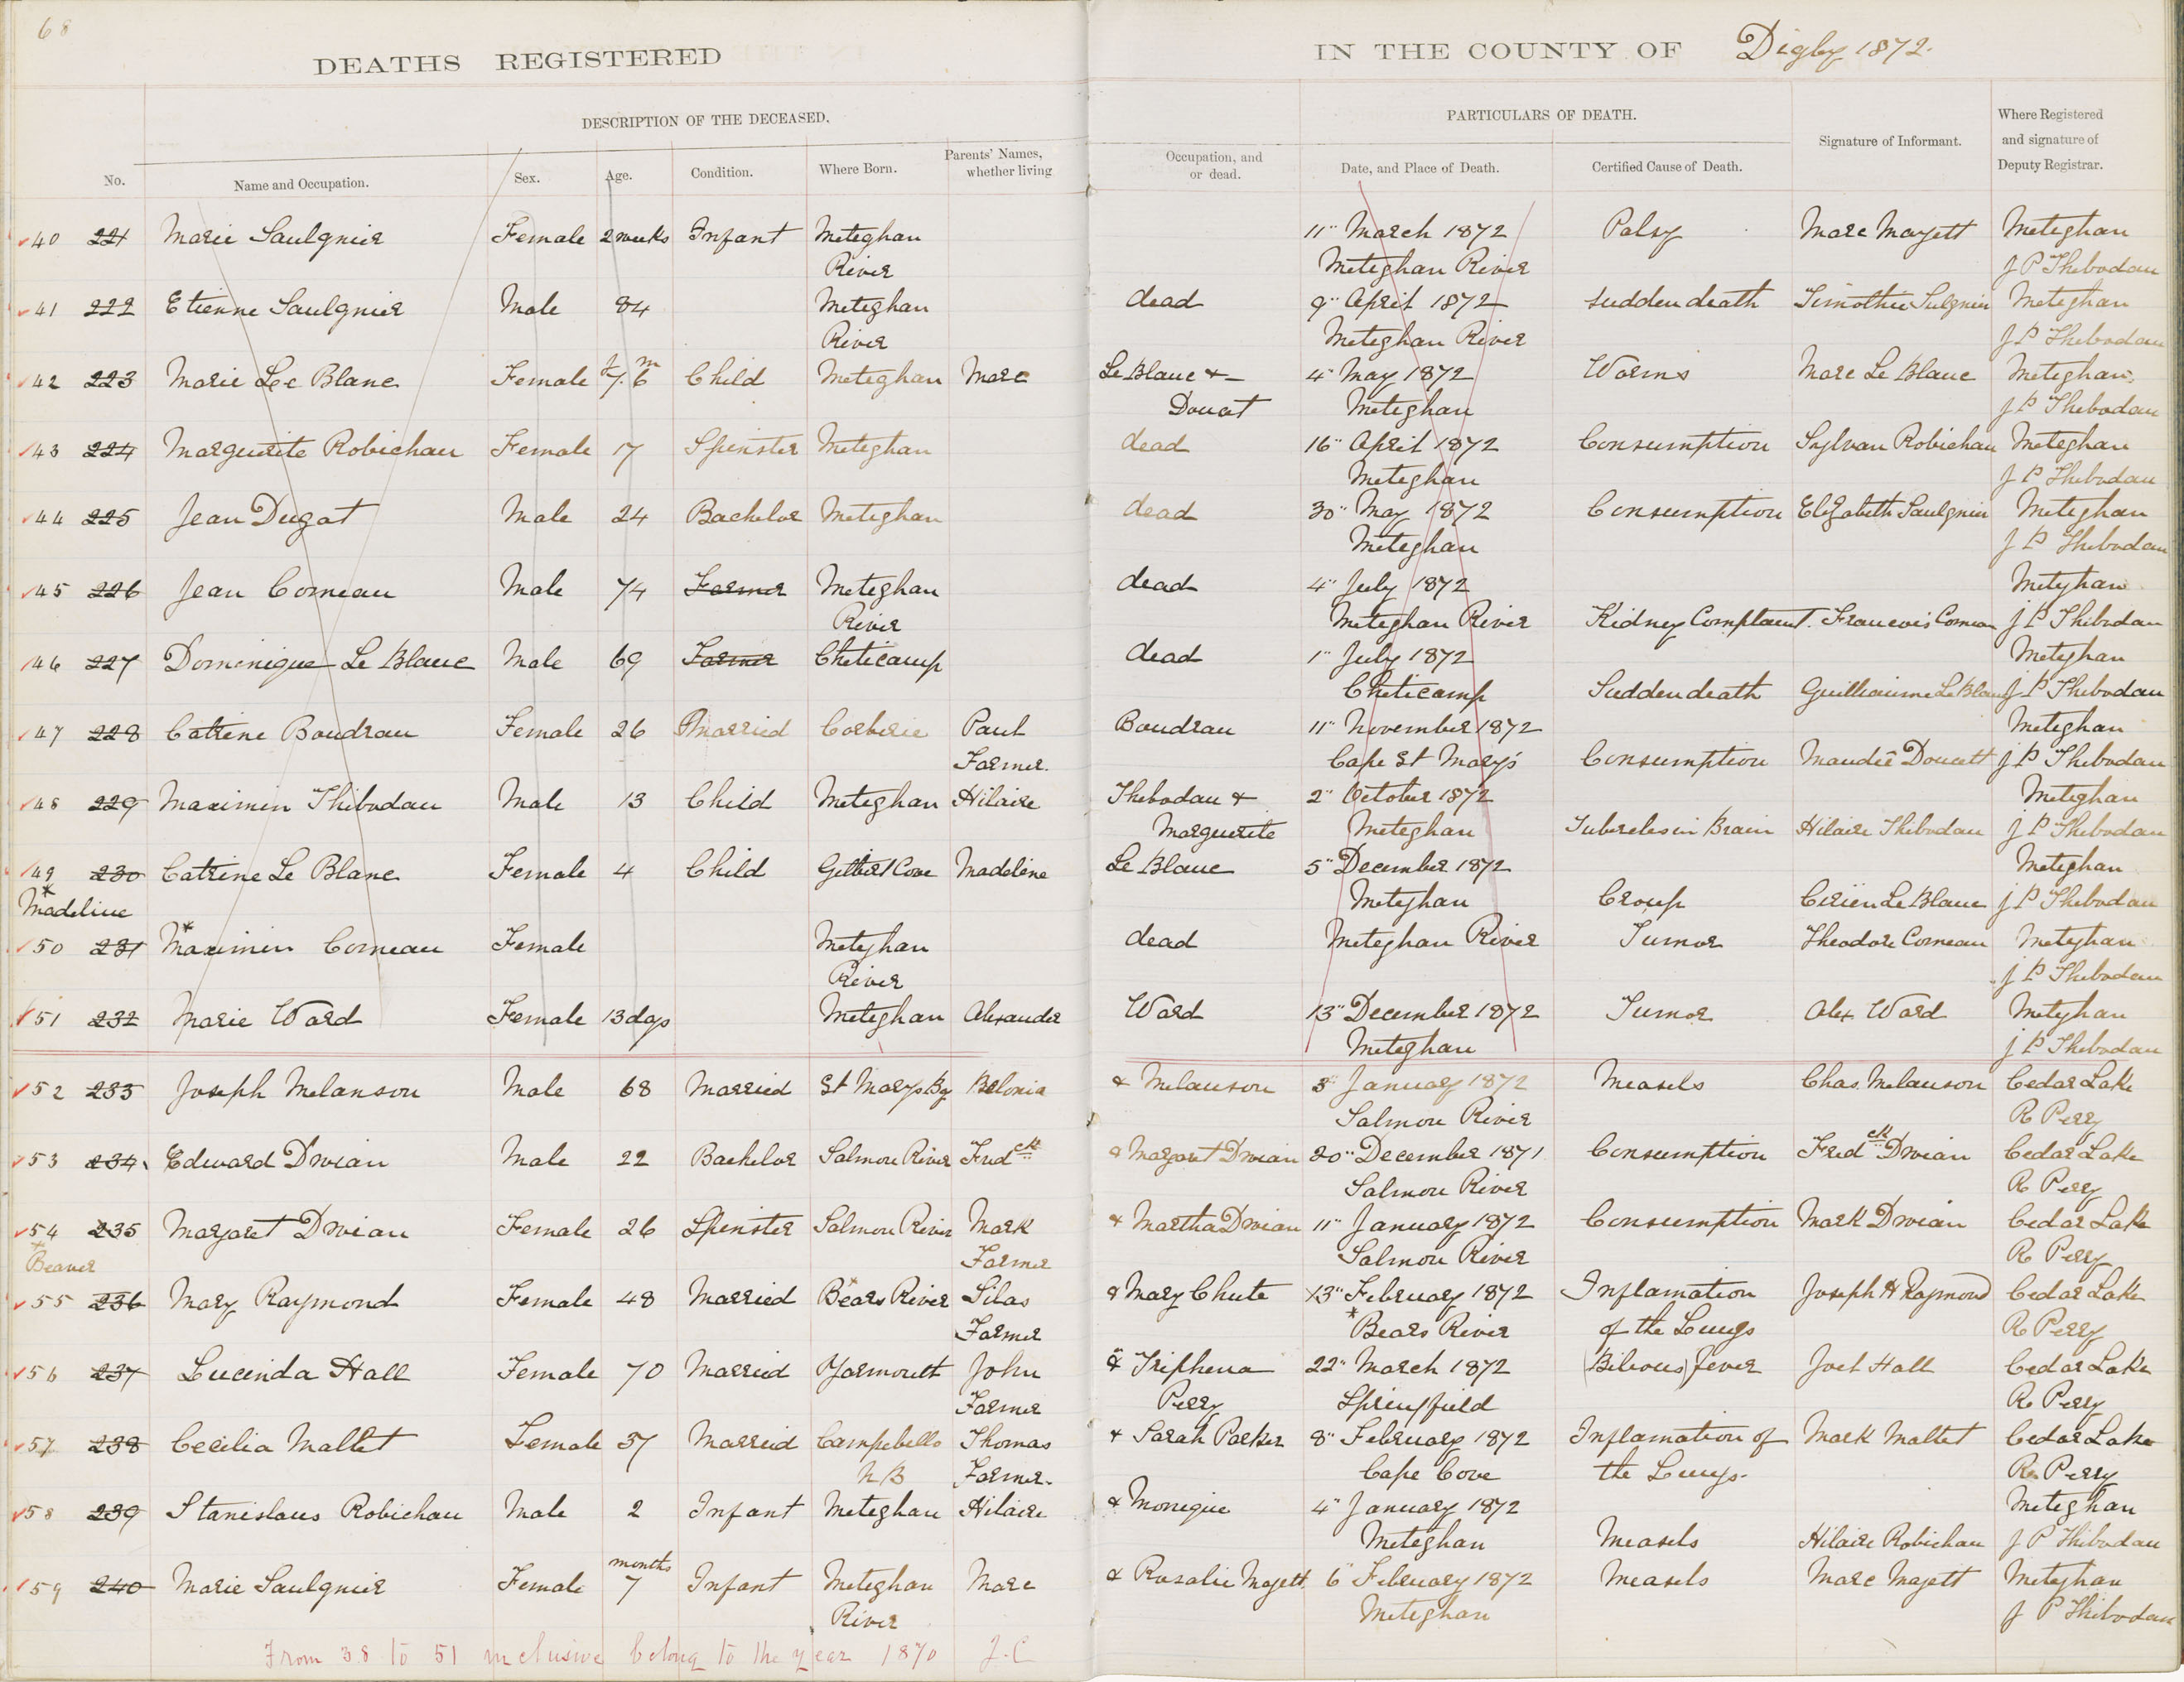 68
DEATHS REGISTERED IN THE COUNTY OF Digby 1872.
DESCRIPTION OF THE DECEASED. PARTICULARS OF DEATH.
No. Name and Occupation. Sex. Age. Condition. Where Born. Parents' Names, whether living Occupation, and or dead. Date, and Place of Death. Certified Cause of Death. Signature of Informant. Where Registered and signature of Deputy Registrar.
40 221 Marie Saulgnier Female 2 weeks Infant Meteghan 11" March 1872 Palsy Marc Mayett Meteghan
River Meteghan River J P Thibodau
41 222 Etienne Saulgnier Male 84 Meteghan dead 9" April 1872 Sudden death Timothee Sulgnier Meteghan
River Meteghan River J P Thibodau
42 223 Marie Lee Blanc Female 6 m Child Meteghan Marc Le Blanc & 4" May 1872 Worms Marc Le Blanc Meteghan
Doucet Meteghan J P Thibodau
43 224 Marguerite Robichau Female 17 Spinster Meteghan dead 16" April 1872 Consumption Sylvan Robichau Meteghan
Meteghan J P Thibodau
44 225 Jean Dugat Male 24 Bachelor Meteghan dead 30" May 1872 Consumption Elizabeth Saulgnier Meteghan
Meteghan J P Thibodau
45 226 Jean Comeau Male 74 Farmer Meteghan dead 4" July 1872 Meteghan
River Meteghan River Kidney Complaint. Francois Comeau J P Thibodau
46 227 Dominique Le Blanc Male 69 Farmer Cheticamp dead 1" July 1872 Meteghan
Cheticamp Sudden death Guilliaume Le Blanc J P Thibodau
47 228 Catrine Boudrau Female 26 Married Corberie Paul Boudrau 11" November 1872 Meteghan
Farmer. Cape St Mary's Consumption Doucett J P Thibodau
48 229 Maximin Thibodau Male 13 Child Meteghan Hilaire Thibodau & 2" October 1872 Meteghan
Marguerite Meteghan Tubercles in Brain Hilaire Thibodau J P Thibodau
49 230 Catrine Le Blanc Female 4 Child Gilbert Cove Madeline Le Blanc 5" December 1872 Meteghan
* Madeline Meteghan Croup Le Blanc J P Thibodau
50 231 *Maximin Comeau Female Meteghan dead Meteghan River Tumor Theodore Comeau Meteghan
River J P Thibodau
51 232 Marie Ward Female 13 days Meteghan Alexander Ward 13" December 1872 Tumor Alex Ward Meteghan
Meteghan J P Thibodau
52 233 Joseph Melanson Male 68 Married St Marys By Belonia & Melanson 3" January 1872 Measels Chas. Melanson Cedar Lake
Salmon River R Perry
53 234 Edward Drvian Male 22 Bachelor Salmon River Fredck & Margaret Drvian 20" December 1871 Consumption Fredck Drvian Cedar Lake
Salmon River R Perry
54 235 Margaret Drvian Female 26 Spinster Salmon River Mark & Martha Drvian 11" January 1872 Consumption Mark Drvian Cedar Lake
* Beaver Farmer Salmon River R Perry
55 236 Mary Raymond Female 48 Married Bears* River Silas & Mary Chute 13" February 1872 Inflamation Joseph H Raymond Cedar Lake
Farmer *Bears River of the Lungs R Perry
56 237 Lucinda Hall Female 70 Married Yarmouth John & Triphena 22" March 1872 Bilious fever Joel Hall Cedar Lake
Farmer Perry Springfield R Perry
57 238 Cecilia Mallet Female 37 Married Campebello Thomas & Sarah Parker 8" February 1872 Inflamation of Mark Mallet Cedar Lake
N B Farmer. Cape Cove the Lungs. R Perry
58 239 Stanislaus Robichau Male 2 Infant Meteghan Hilaire & Monique 4" January 1872 Meteghan
Meteghan Measels Hilaire Robichau J P Thibodau
59 240 Marie Saulgnier Female 7 months Infant Meteghan Marc & Rosalie Mayett 6" February 1872 Measels Marc Mayett Meteghan
River Meteghan J P Thibodau
From 38 to 51 inclusive belong to the year 1870 J.C